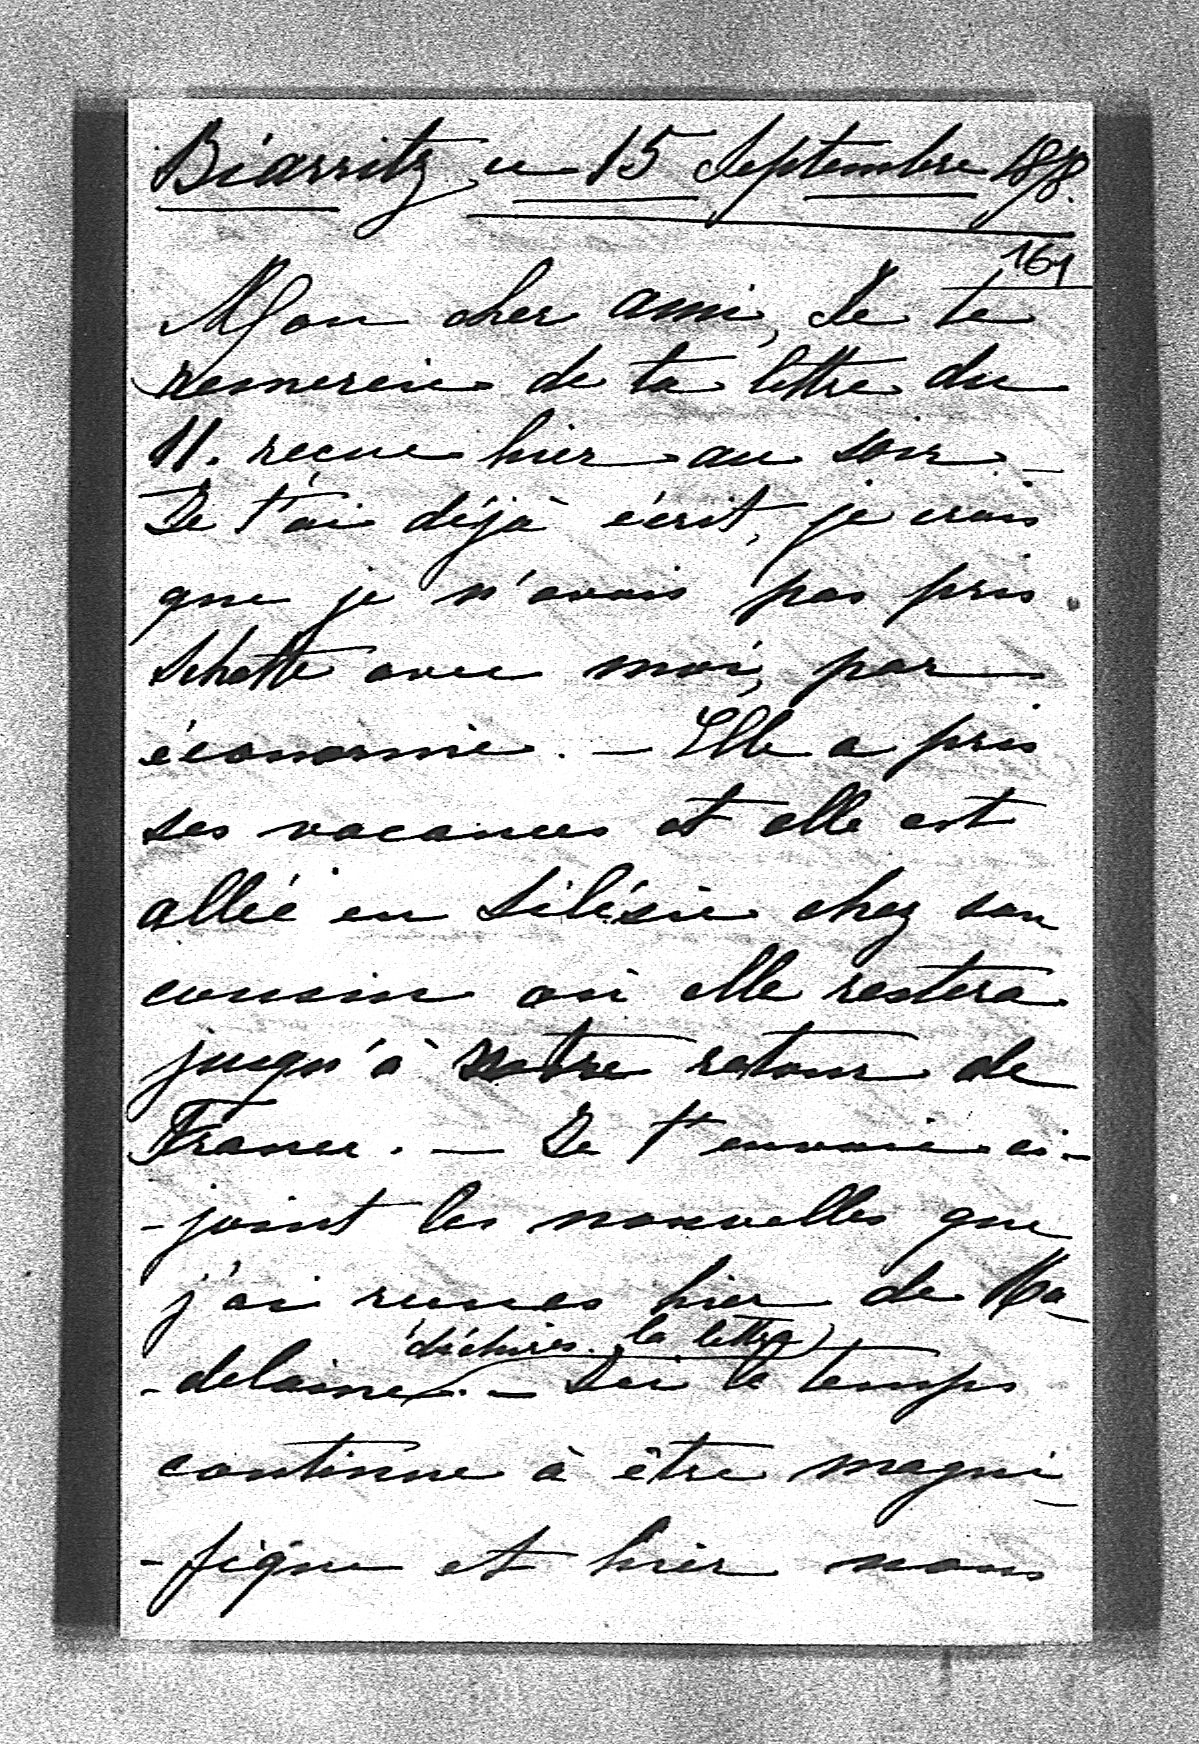 Biarritz ce 15 Septembre 1878.
161
Mon cher ami, Je te
remercie de ta lettre du
11. reçue hier au soir —
Je t'ai déjà écrit, je crois
que je n'avais pas pris
Schotte avec moi, par
économie. — Elle a pris
ses vacances et elle est
allée en Silésie chez son
cousin où elle restera
jusqu'à notre retour de
France. — Je t'envoie ci-
-joint les nouvelles que
j'ai reçues hier de Ma-
(déchires la lettre)
-delaine. — Ici le temps
continue à être magni-
-fique et hier nous